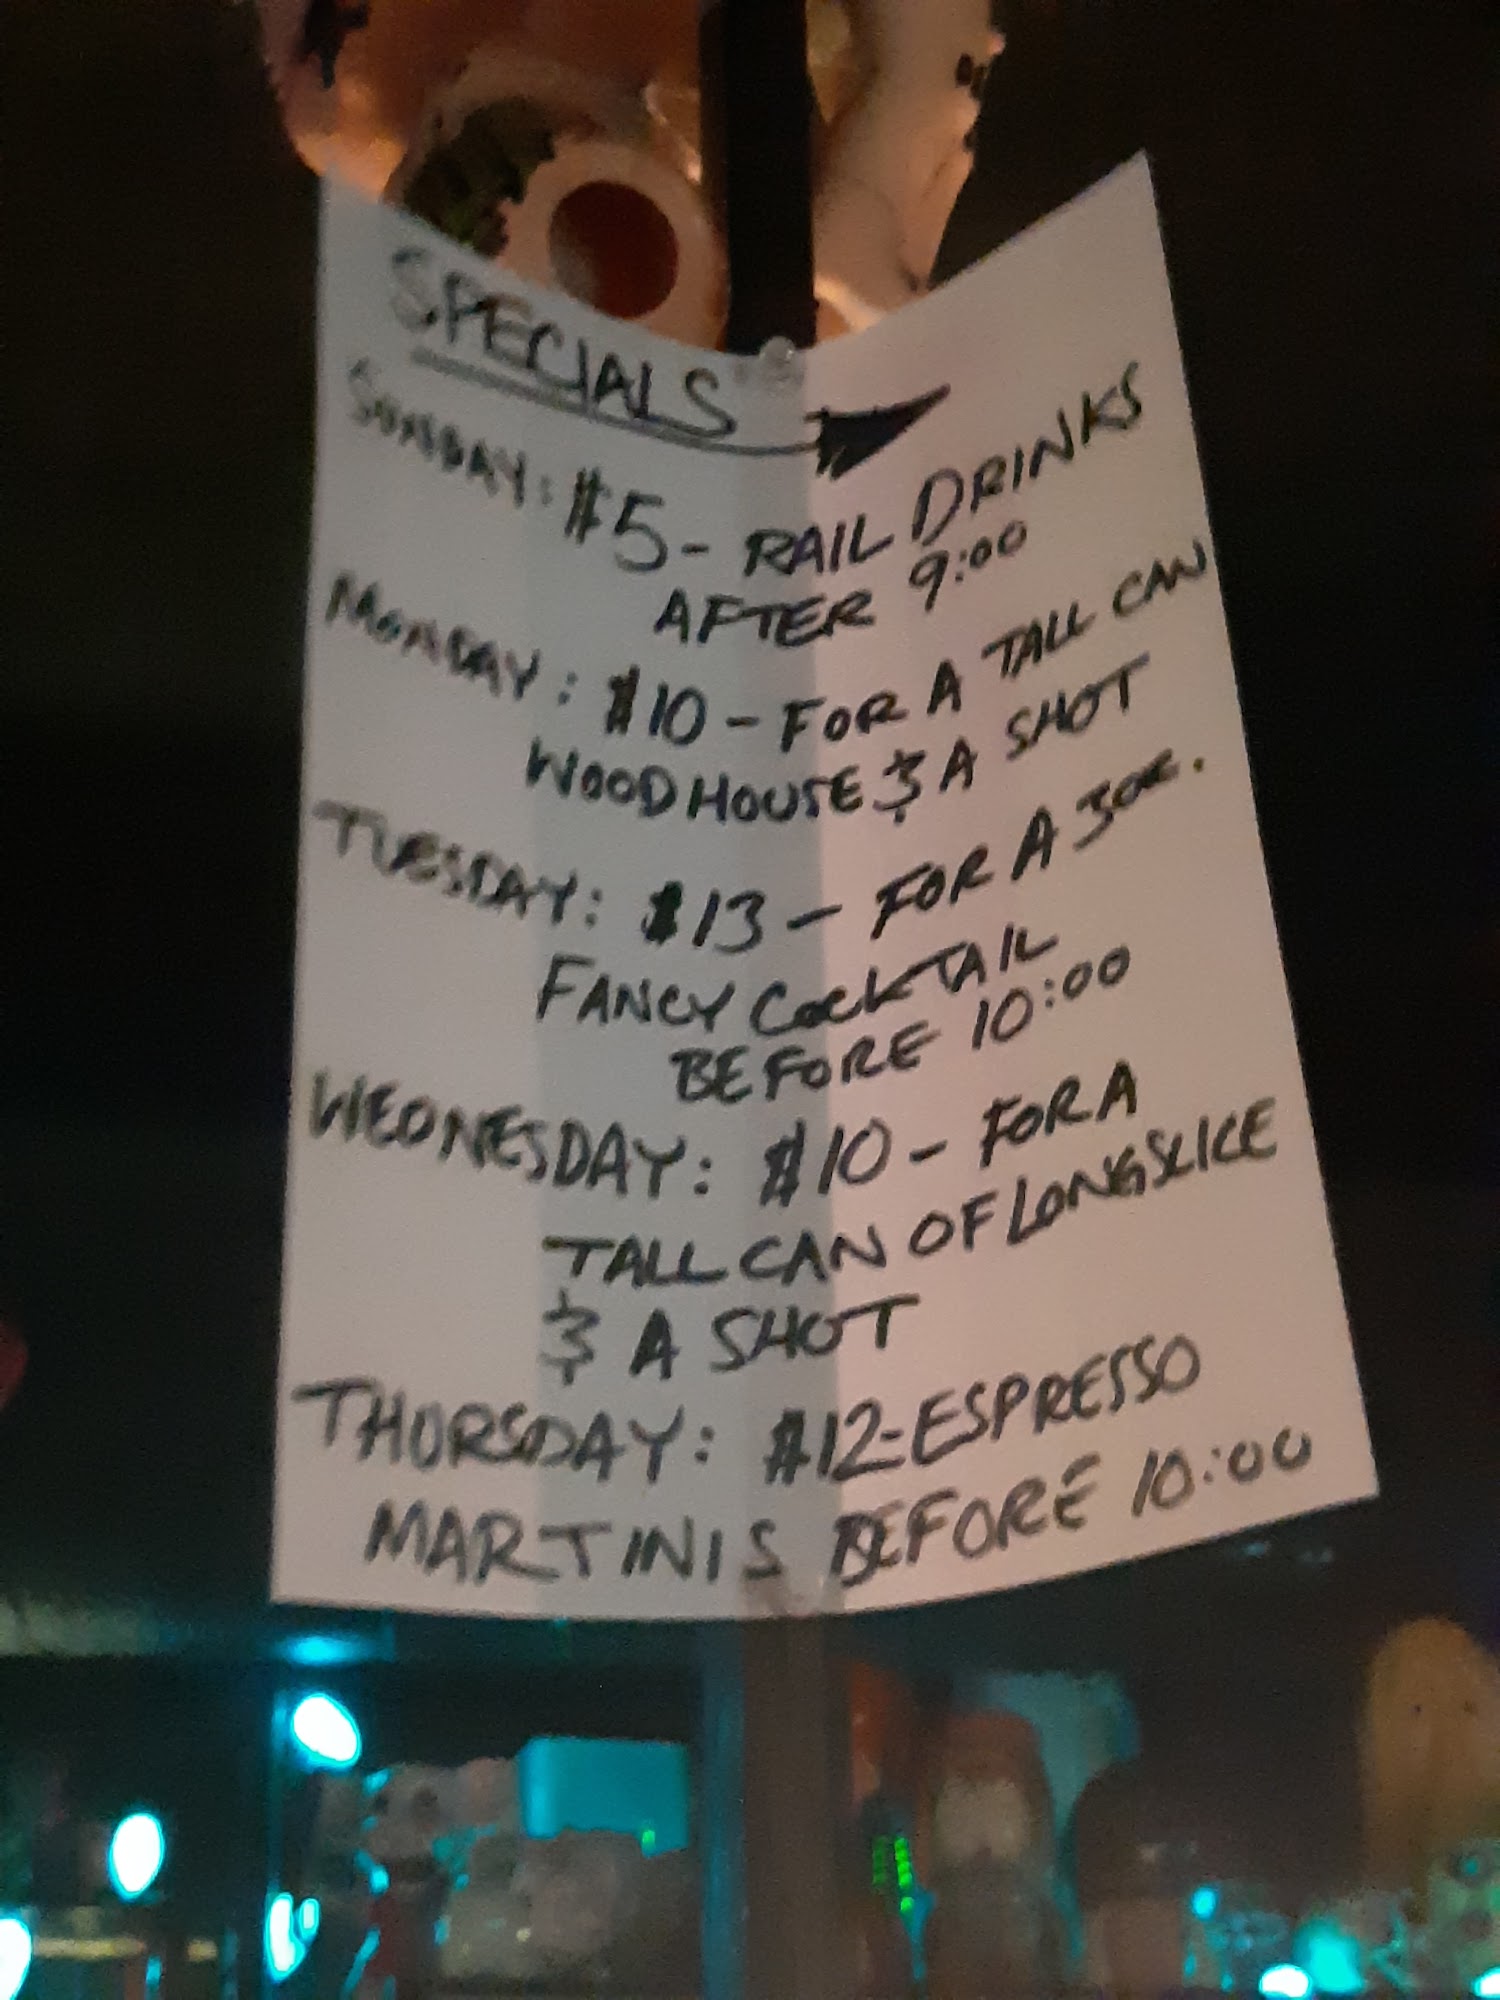 SPECIALS
SUNDAY: $5 - RAIL DRINKS
AFTER 9:00
MONDAY: $10 - FOR A TALL CAN
WOODHOUSE & A SHOT
TUESDAY: $13 - FOR A 3oz.
FANCY COCKTAIL
BEFORE 10:00
WEDNESDAY: $10 - FOR A
TALL CAN OF LONGSLICE
& A SHOT
THURSDAY: $12-ESPRESSO
MARTINIS BEFORE 10:00